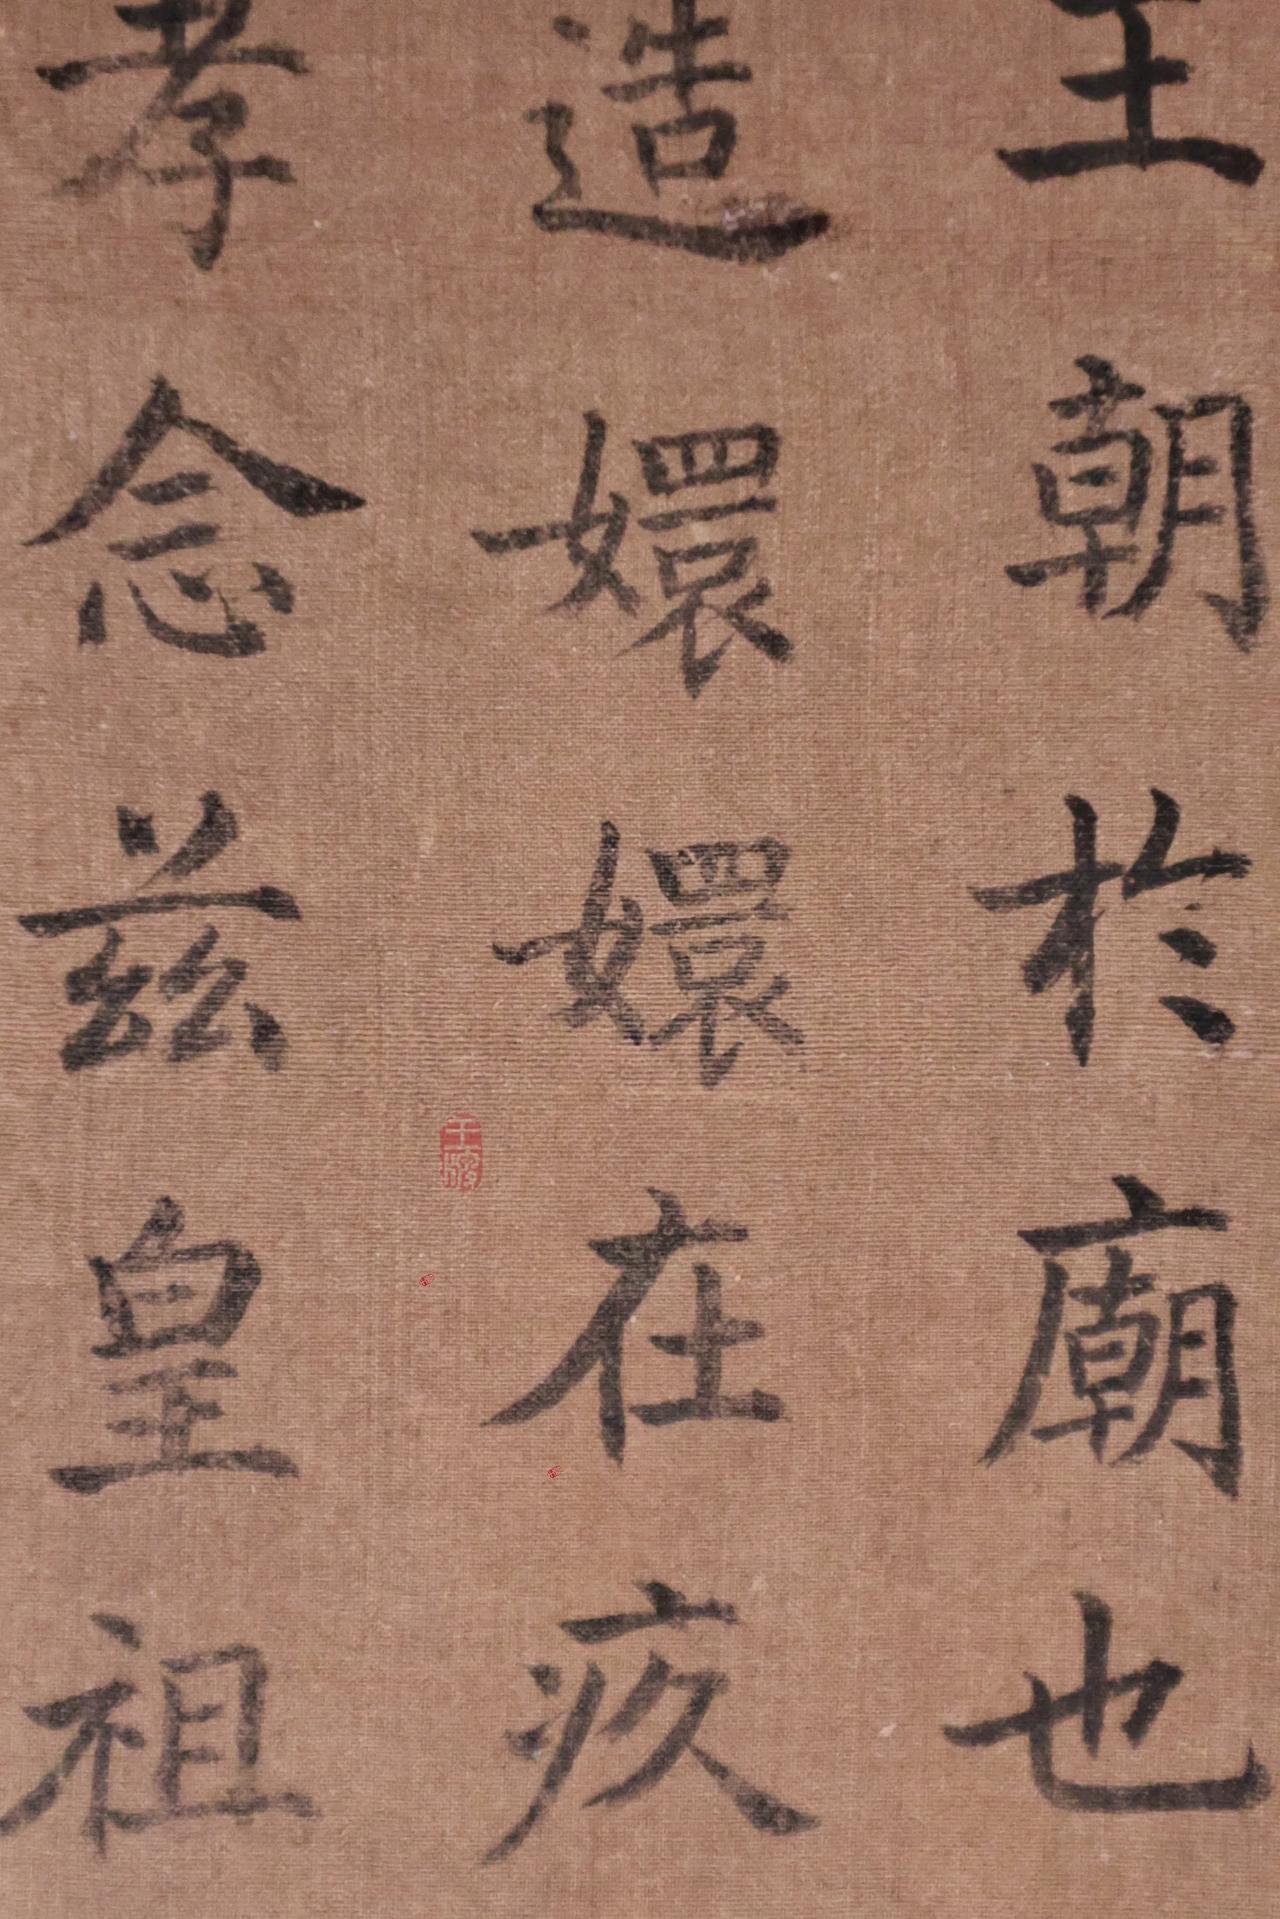 王朝於廟也
造嬛嬛在疚
孝念茲皇祖